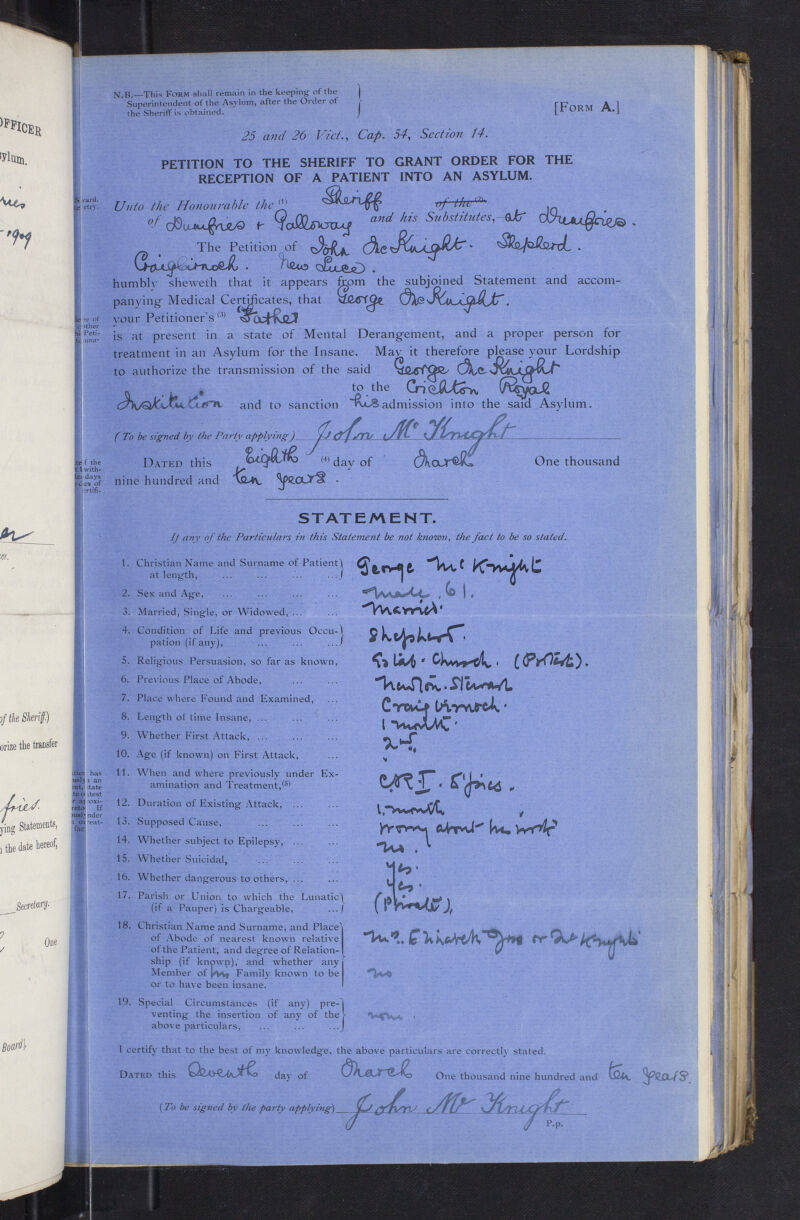 N.B.—This Form shall remain in the keeping of the
Superintendent of the Asylum, after the Order of
the Sheriff is obtained.
[Form A.]
25 and 26 Vict., Cap. 54, Section 14.
PETITION TO THE SHERIFF TO GRANT ORDER FOR THE
RECEPTION OF A PATIENT INTO AN ASYLUM.
Unto the Honourable the (1) Sheriff of the (2)
of Dumfries + Galloway and his Substitutes, at Dumfries.
The Petition of John McKnight. Shepherd.
Craigbirnoch. New Luce.
humbly sheweth that it appears from the subjoined Statement and accom-
panying Medical Certificates, that George McKnight.
your Petitioner's (3) Father
is at present in a state of Mental Derangement, and a proper person for
treatment in an Asylum for the Insane. May it therefore please your Lordship
to authorize the transmission of the said George McKnight
to the Crichton Royal
Institution and to sanction his admission into the said Asylum.
(To be signed by the Party applying) John McKnight
Dated this Eighth (4) day of March One thousand
nine hundred and ten years.
STATEMENT.
If any of the Particulars in this Statement be not known, the fact to be so stated.
1. Christian Name and Surname of Patient at length, ... George McKnight
2. Sex and Age, ... Male. 61.
3. Married, Single, or Widowed, ... Married.
4. Condition of Life and previous Occupation (if any), ... Shepherd.
5. Religious Persuasion, so far as known, Estab. Church. (Protest).
6. Previous Place of Abode, ... Newton-Stewart
7. Place where Found and Examined, ... Craigbirnoch.
8. Length of time Insane, ... 1 month.
9. Whether First Attack, ... 2nd.
10. Age (if known) on First Attack, ... "
11. When and where previously under Examination and Treatment,(5) C.R.I. D'fries.
12. Duration of Existing Attack, ... 1 month
13. Supposed Cause, ... Worry about his work
14. Whether subject to Epilepsy, ... No.
15. Whether Suicidal, ... Yes.
16. Whether dangerous to others, ... Yes.
17. Parish or Union to which the Lunatic (if a Pauper) is Chargeable, ... (Private),
18. Christian Name and Surname, and Place
of Abode of nearest known relative Mrs. or McKnight
of the Patient, and degree of Relation-
ship (if known), and whether any
Member of his Family known to be no
or to have been insane.
19. Special Circumstances (if any) pre-
venting the insertion of any of the none.
above particulars, ...
I certify that to the best of my knowledge, the above particulars are correctly stated.
Dated this Seventh day of March One thousand nine hundred and ten years.
(To be signed by the party applying) John McKnight
P.p.
OFFICER
1909
of the Sheriff.)
the transfer
fries.
ying Statements,
the date hereof,
Secretary.
One
Board),